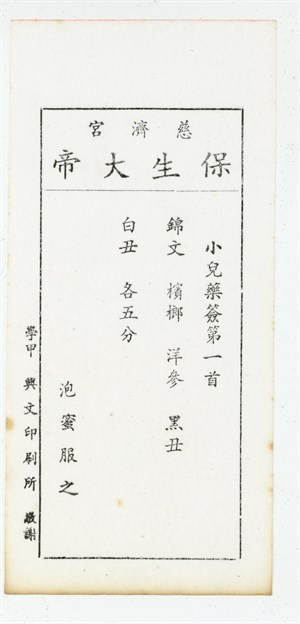 慈濟宮
保生大帝
小兒藥簽第一首
錦文 檳榔 洋參 黑丑
白丑 各五分
泡蜜服之
學甲 興文印刷所 敬謝